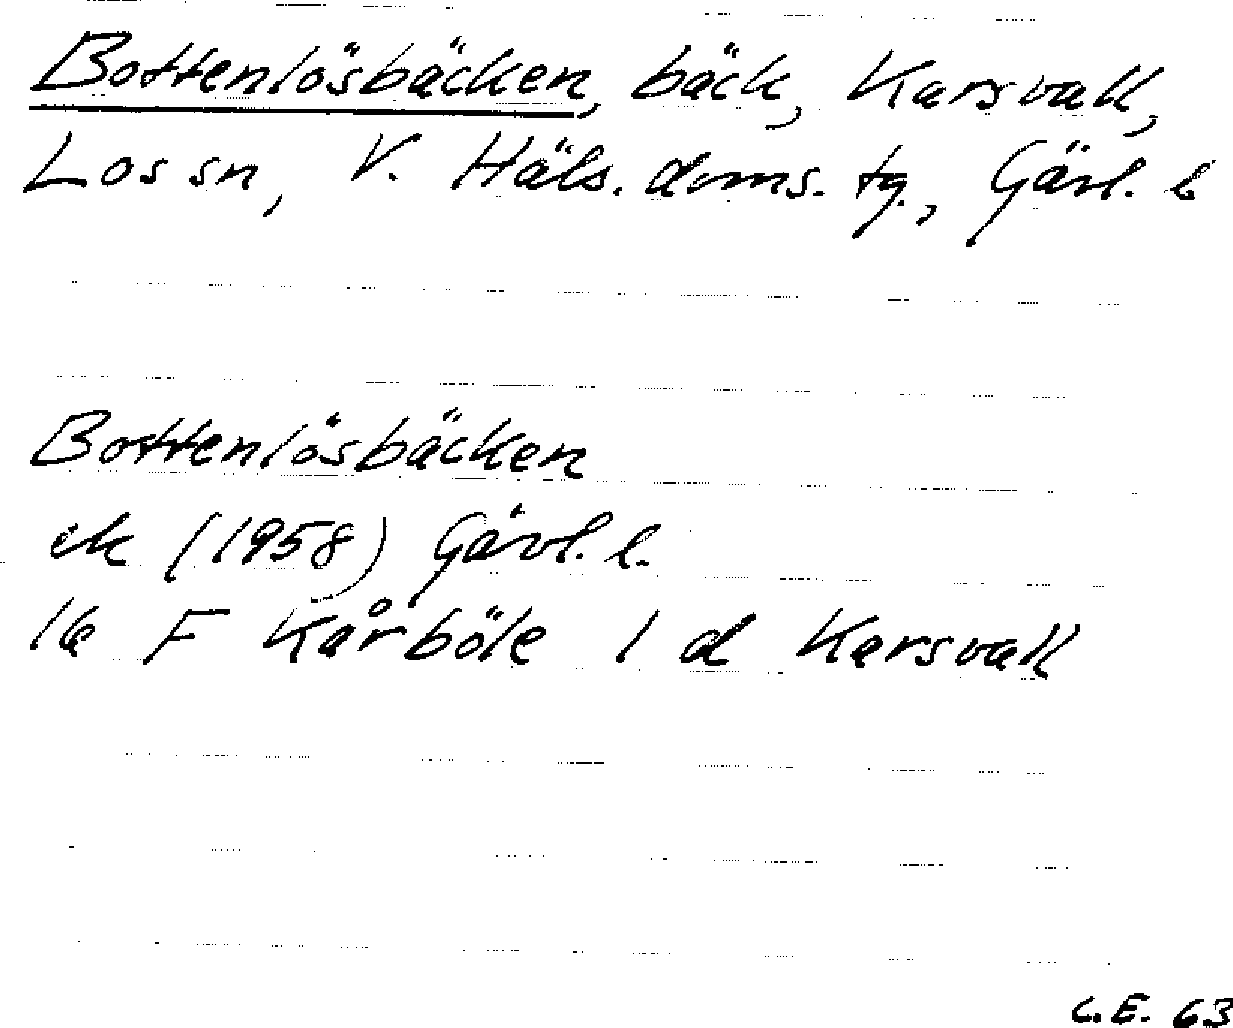 Bottenlösbäcken, bäck, Karsvall,
Los sn, V. Häls. doms. tg., Gävl. l
Bottenlösbäcken
ek (1958) Gävl. l.
16 F Kårböle 1 d Karsvall
C.E. 63